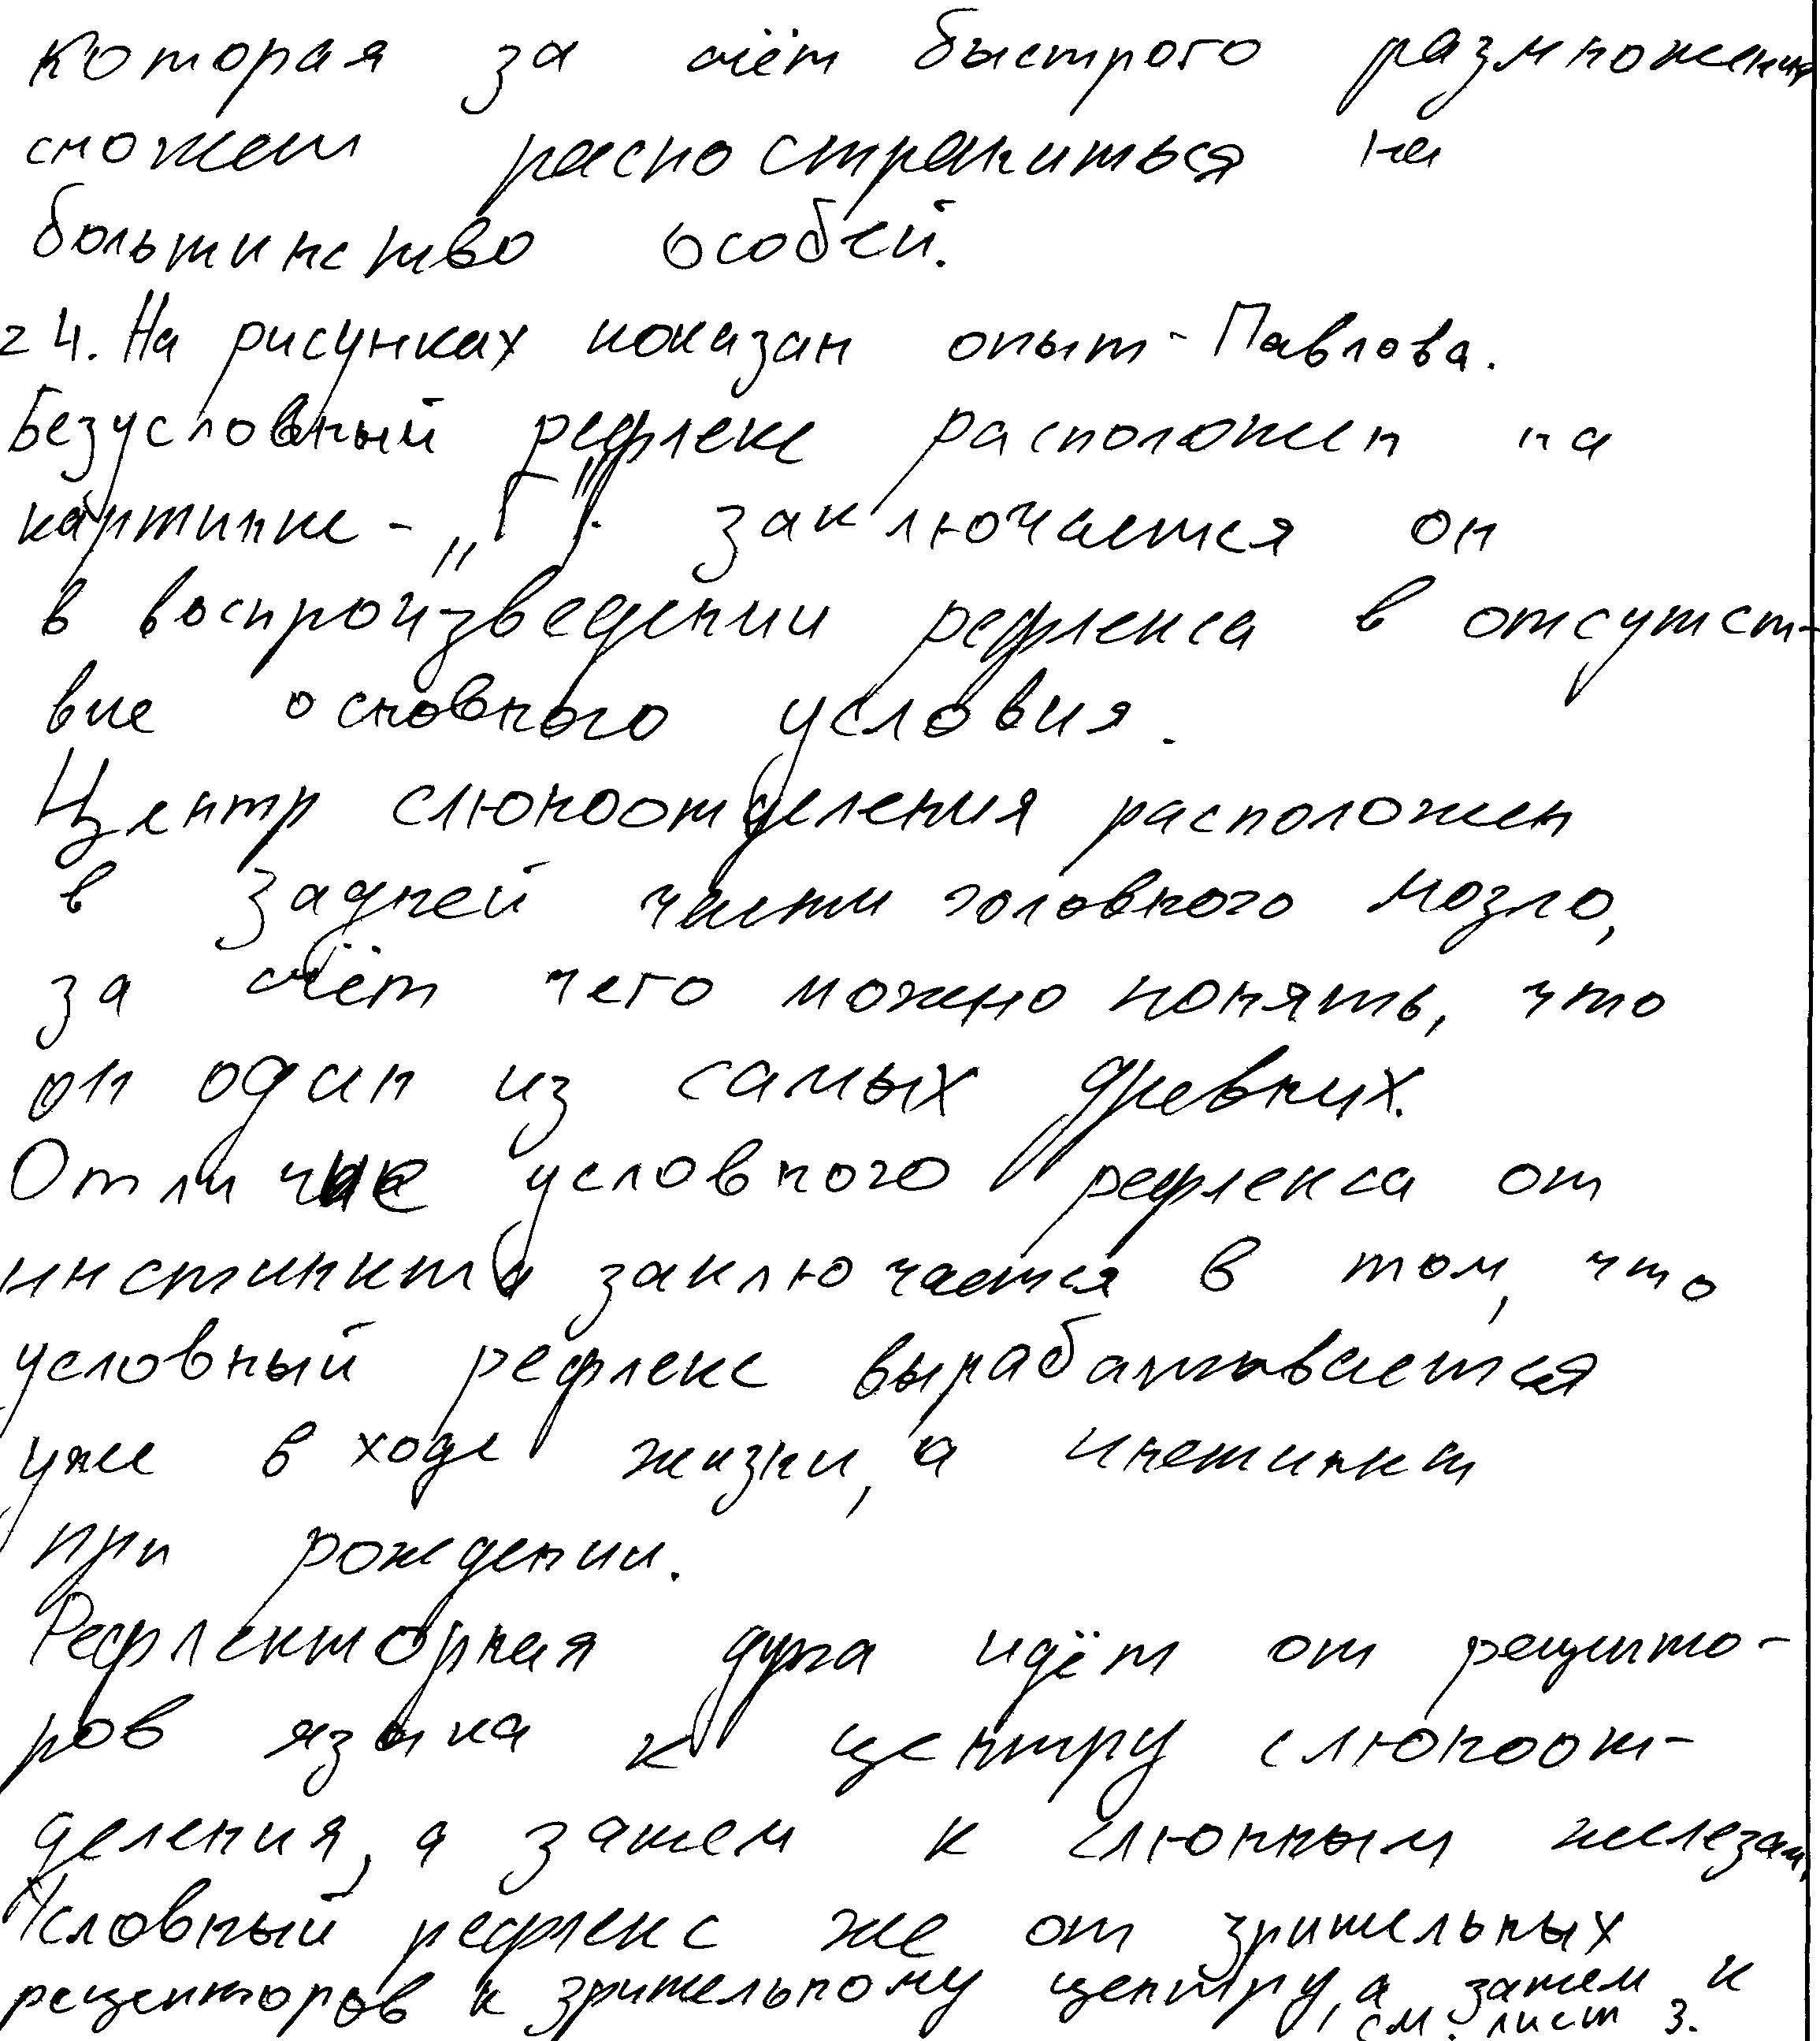 которая за счёт быстрого размножения
сможет распостраниться на
большинство особей.
24. На рисунках показан опыт - Павлова.
Безусловный рефлекс расположен на
картинке - „Г". Заключается он
в воспроизведении рефлекса в отсутст-
вие основного условия.
Центр слюноотделения расположен
в задней части головного мозго,
за счёт чего можно понять, что
он один из самых древних.
Отличие условного рефлекса от
инстинкта заключается в том, что
условный рефлекс вырабатывается
уже в ходе жизни, а инстинкт
при рождении.
Рефлекторная дуга идёт от рецепто-
ров языка к центру слюноот-
деления, а затем к слюнным железам,
Условный рефлекс же от зрительных
рецепторов к зрительному центру, а затем к
см. лист 3.